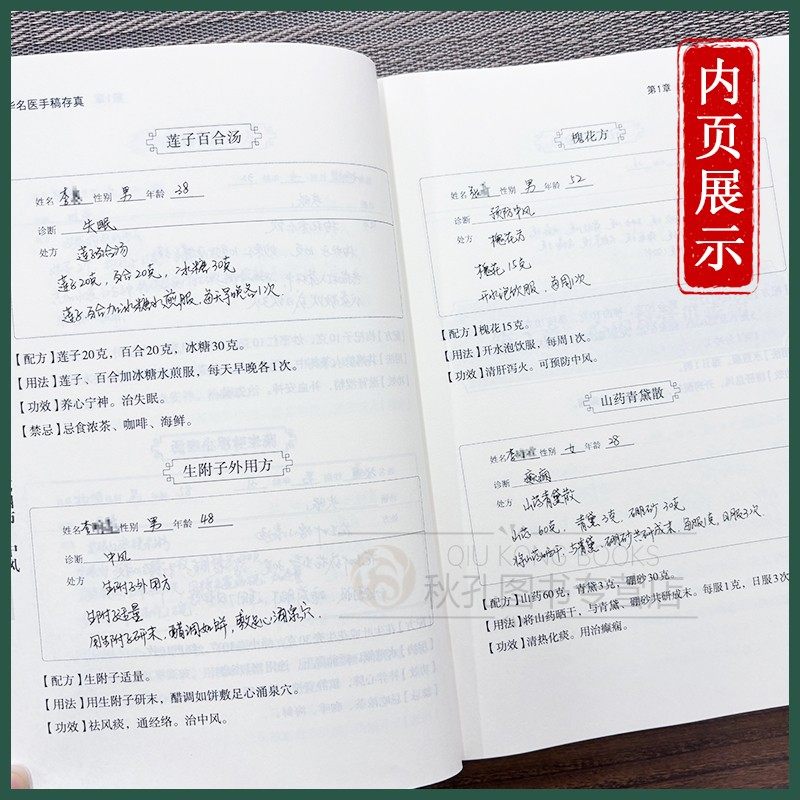 华名医手稿存真
莲子百合汤
姓名 李 性别 男 年龄 38
诊断 失眠
处方 莲子百合汤
莲子20克，百合20克，冰糖30克
莲子百合加冰糖水煎服，每天早晚各1次
【配方】莲子20克，百合20克，冰糖30克。
【用法】莲子、百合加冰糖水煎服，每天早晚各1次。
【功效】养心宁神。治失眠。
【禁忌】忌食浓茶、咖啡、海鲜。
生附子外用方
姓名 李 性别 男 年龄 48
诊断 中风
处方 生附子外用方
生附子适量
用生附子研末，醋调如饼，敷足心涌泉穴。
【配方】生附子适量。
【用法】用生附子研末，醋调如饼敷足心涌泉穴。
【功效】祛风痰，通经络。治中风。
第1章
槐花方
姓名 性别 男 年龄 52
诊断 预防中风
处方 槐花方
槐花15克
开水泡饮服，每周1次
【配方】槐花15克。
【用法】开水泡饮服，每周1次。
【功效】清肝泻火。可预防中风。
山药青黛散
姓名 李 性别 女 年龄 28
诊断 癫痫
处方 山药青黛散
山药60克，青黛3克，硼砂30克
将山药晒干，与青黛、硼砂共研成末，每服1克，日服3次
【配方】山药60克，青黛3克，硼砂30克。
【用法】将山药晒干，与青黛、硼砂共研成末。每服1克，日服3次
【功效】清热化痰。用治癫痫。
内页展示
QIU KONG BOOKS
秋孔图书专营店